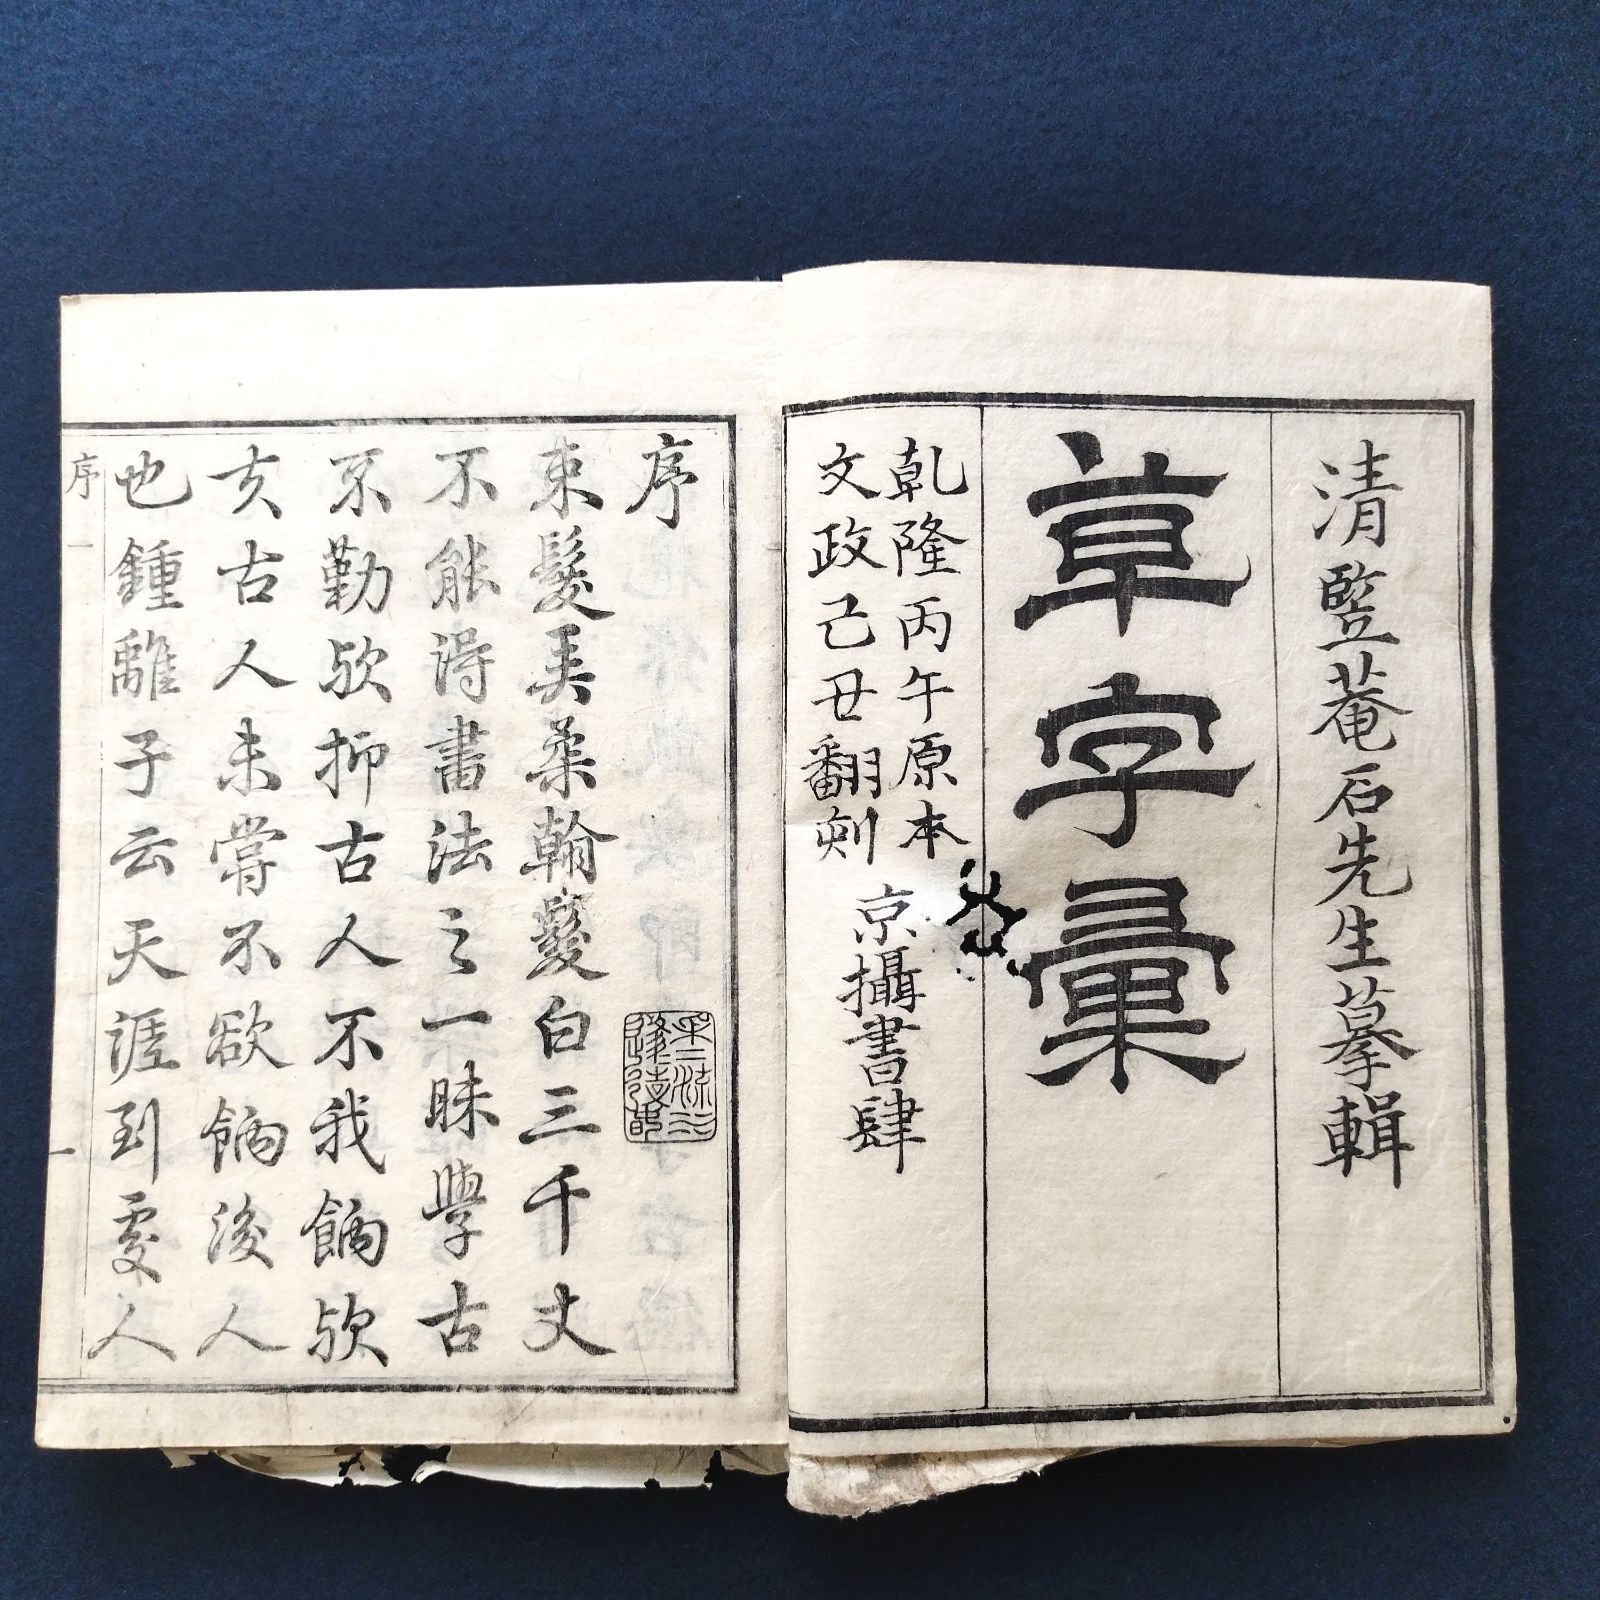 清竪菴石先生摹輯
草字彙
乾隆丙午原本
文政己丑翻刻
京攝書肆
序
束髮弄柔翰髮白三千丈
不能得書法之一昧學古
不勤歟抑古人不我餉歟
夫古人未嘗不欲餉後人
也鍾離子云天涯到處人
序 一